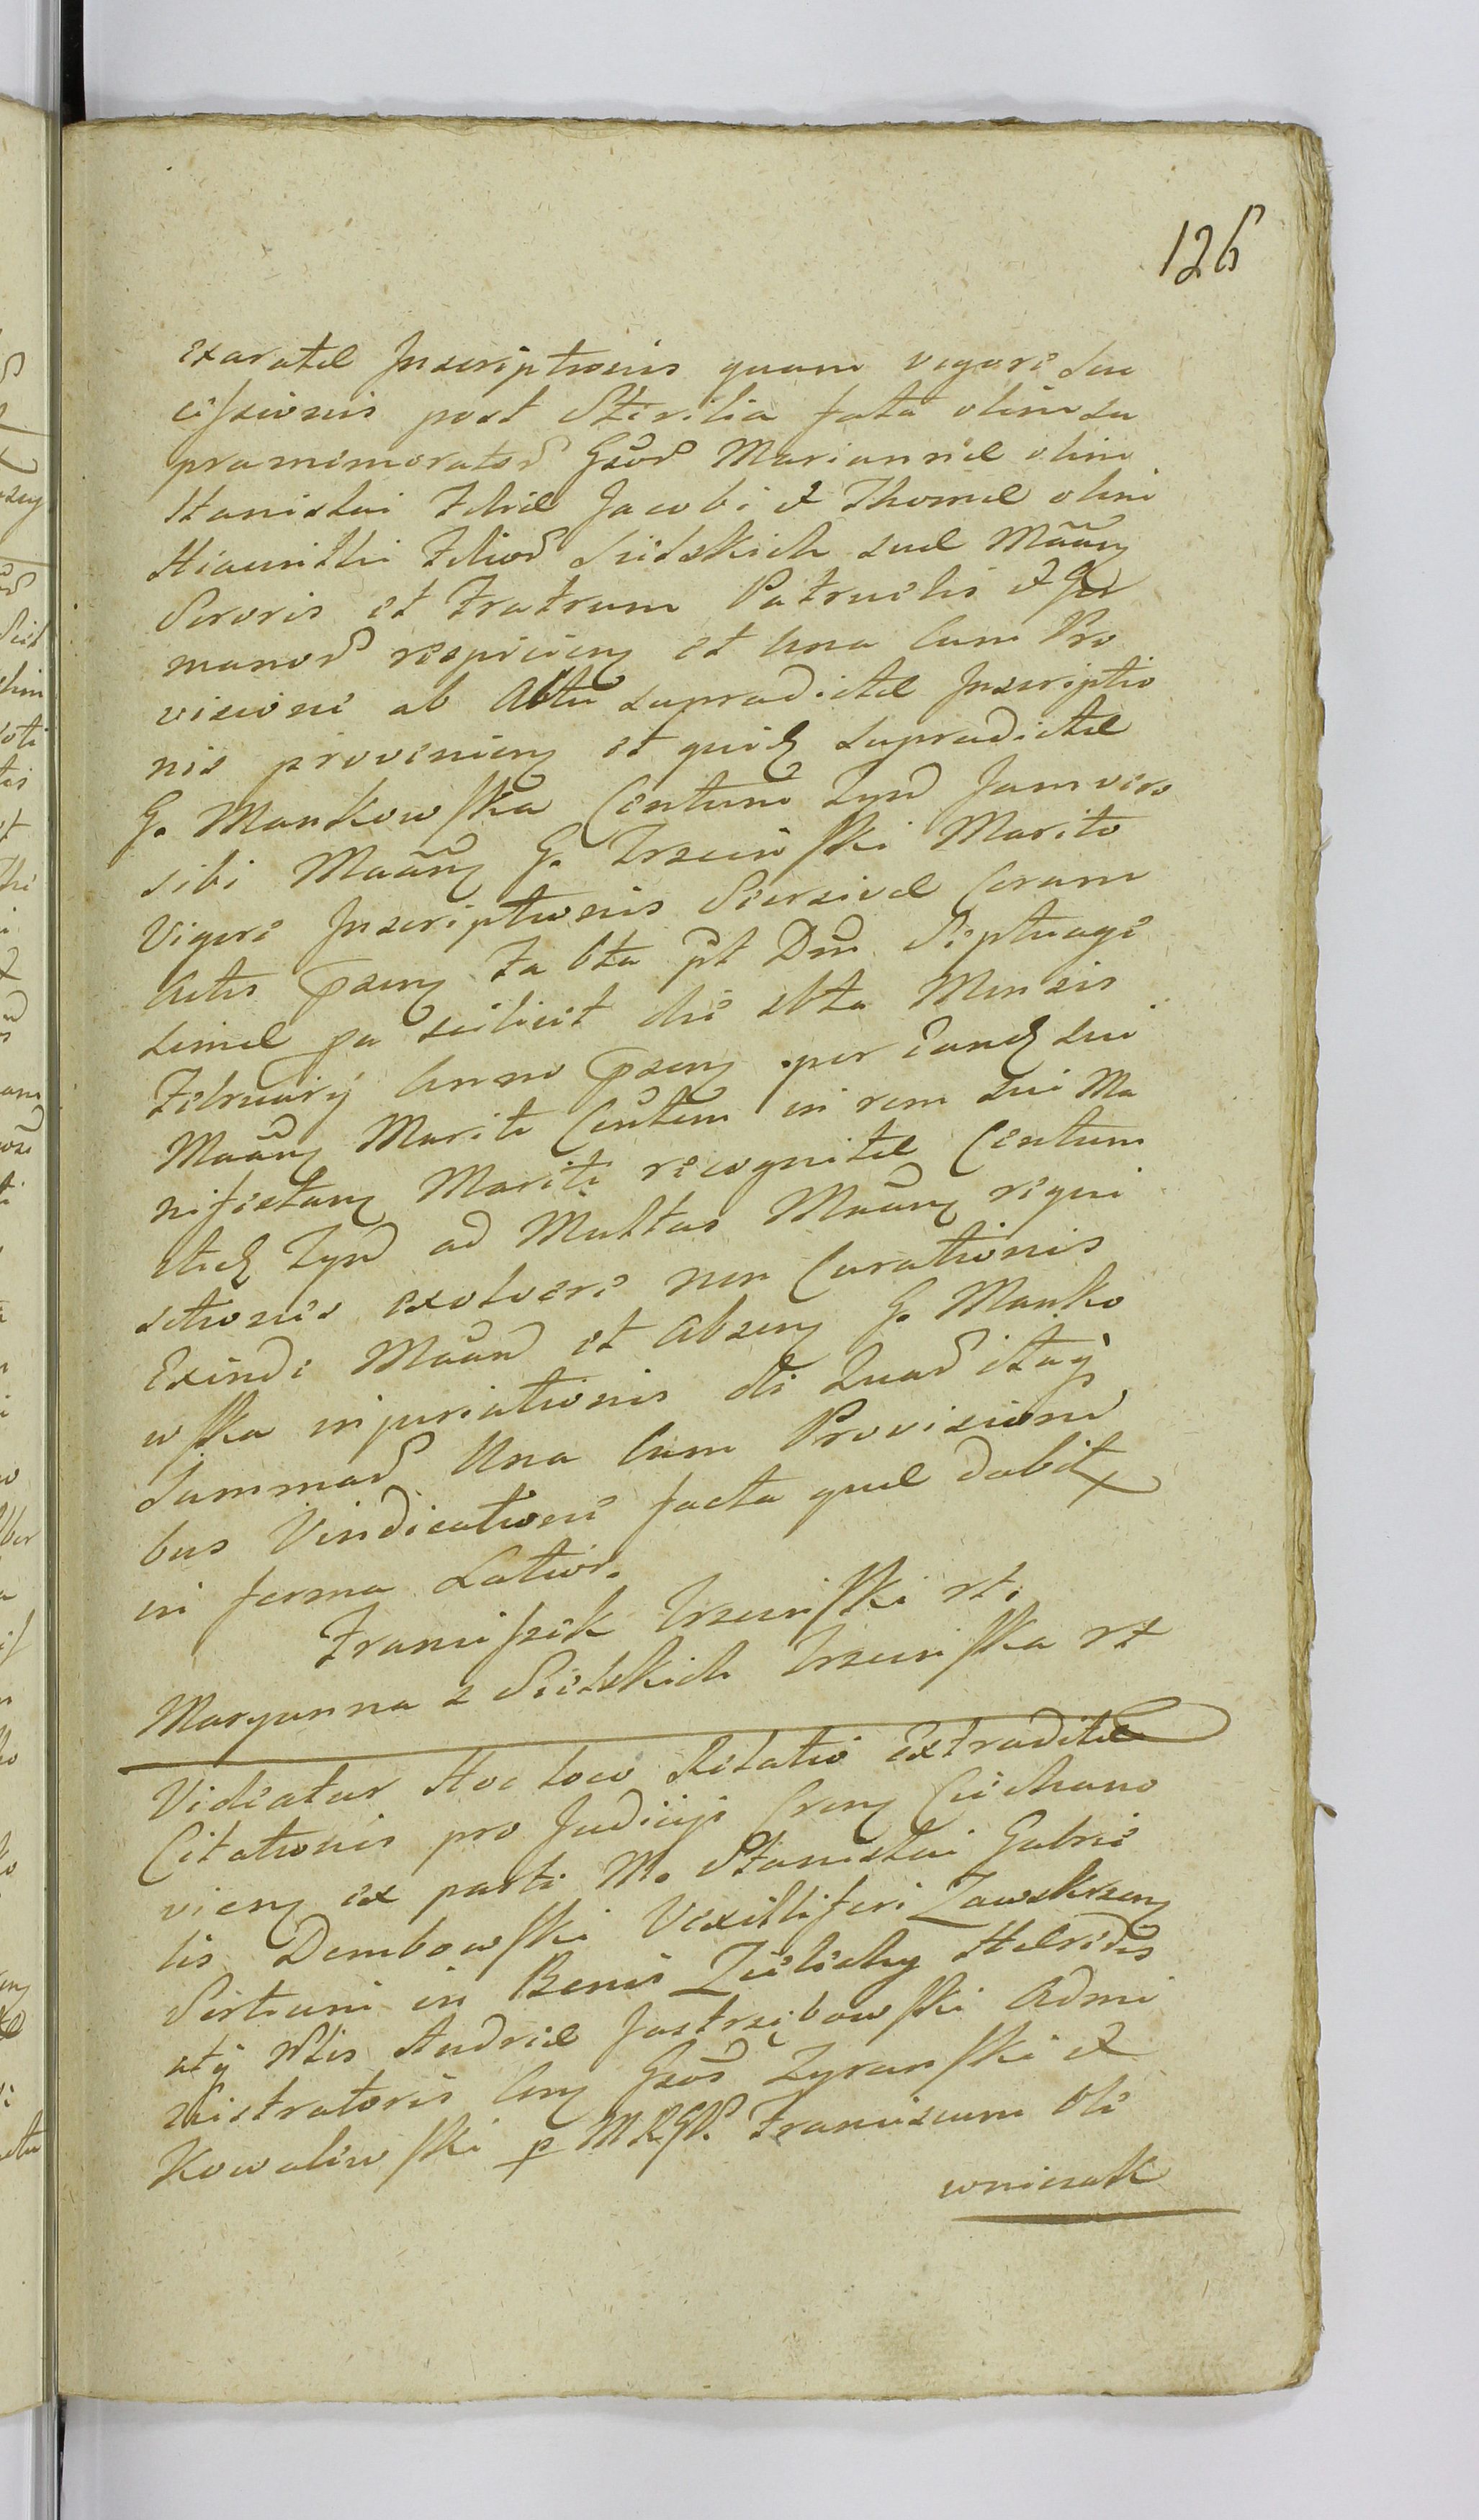 126
exaratæ Inscriptionis quam vigore Suc
cessionis post Sterilia fata olim su
pramemorator Gsor Mariannæ olim
Stanislai Filiæ Jacobi et Thomæ olim
Hiacinthi Filior Sielskich suæ Maãn
Sororis et Fratrum Patruelis et Ger
manor respicien et una Cum Pro
visione ab Actu supradictæ Inscriptio
nis provenien et quid supradictæ
G. Mankowska Centum Fpn Jam vero
sibi Maãn G. Trzcinski Marito
Vigore Inscriptionis Seorsivæ Coram
Actis psen Fa 6ta pt Dm Septuage
simæ pa scilicet die 6ta Mensis
February Anno psen per eand sui
Maãn Mariti Centum in rem sui Ma
nifestan Mariti recognitæ Centum
itid Fpn ad Multas Maãn requi
sitiones exolvere non Curationis
Exinde Maãn et absen G. Manko
wska injuriationis de quar itaq
Summar Una Cum Provisioni
bus Vindicatione facta quæ dabit
in forma Latior.
Franciszek Trzcinski rt.
Maryanna z Sielskich Trzcinska rt
Videatur Hoc loco Relatio Extraditæ
Citationis pro Judicijs Cren Ciechano
vien ex parte M. Stanislai Gabrie
lis Dembowski Vexilliferi Zawskrzen
Sortium in Bonis Zielechy Hæredis
atq Nlis Andreæ Jastrzębowski Admi
nistratoris Con Gsos Zyranski et
Kowalewski p MRGD. Franciscum Ole
wniczak